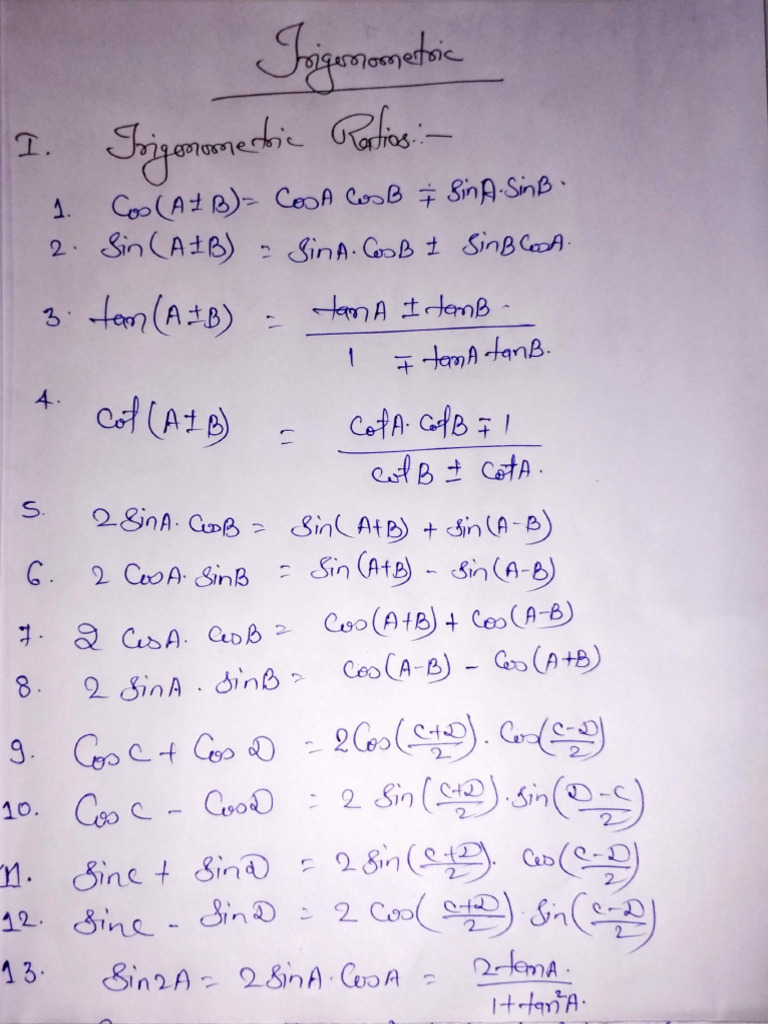 Trigonometric
I. Trigonometric Ratios:-
1. Cos(A±B)= CosA CosB ∓ SinA.SinB.
2. Sin(A±B) = SinA.CosB ± SinBCosA.
3. tan(A±B) = tanA ± tanB.
1 ∓ tanA tanB.
4. Cot(A±B) = CotA.CotB ∓ 1
CotB ± CotA.
5. 2SinA.CosB = Sin(A+B) + Sin(A-B)
6. 2 CosA.SinB = Sin(A+B) - Sin(A-B)
7. 2 CosA. CosB = Cos(A+B) + Cos(A-B)
8. 2 SinA . SinB = Cos(A-B) - Cos(A+B)
9. CosC + CosD = 2Cos(C+D/2). Cos(C-D/2)
10. CosC - CosD = 2 Sin(C+D/2).Sin(D-C/2)
11. SinC + SinD = 2Sin(C+D/2). Cos(C-D/2)
12. SinC - SinD = 2 Cos(C+D/2).Sin(C-D/2)
13. Sin2A = 2SinA.CosA = 2tanA.
1+tan²A.